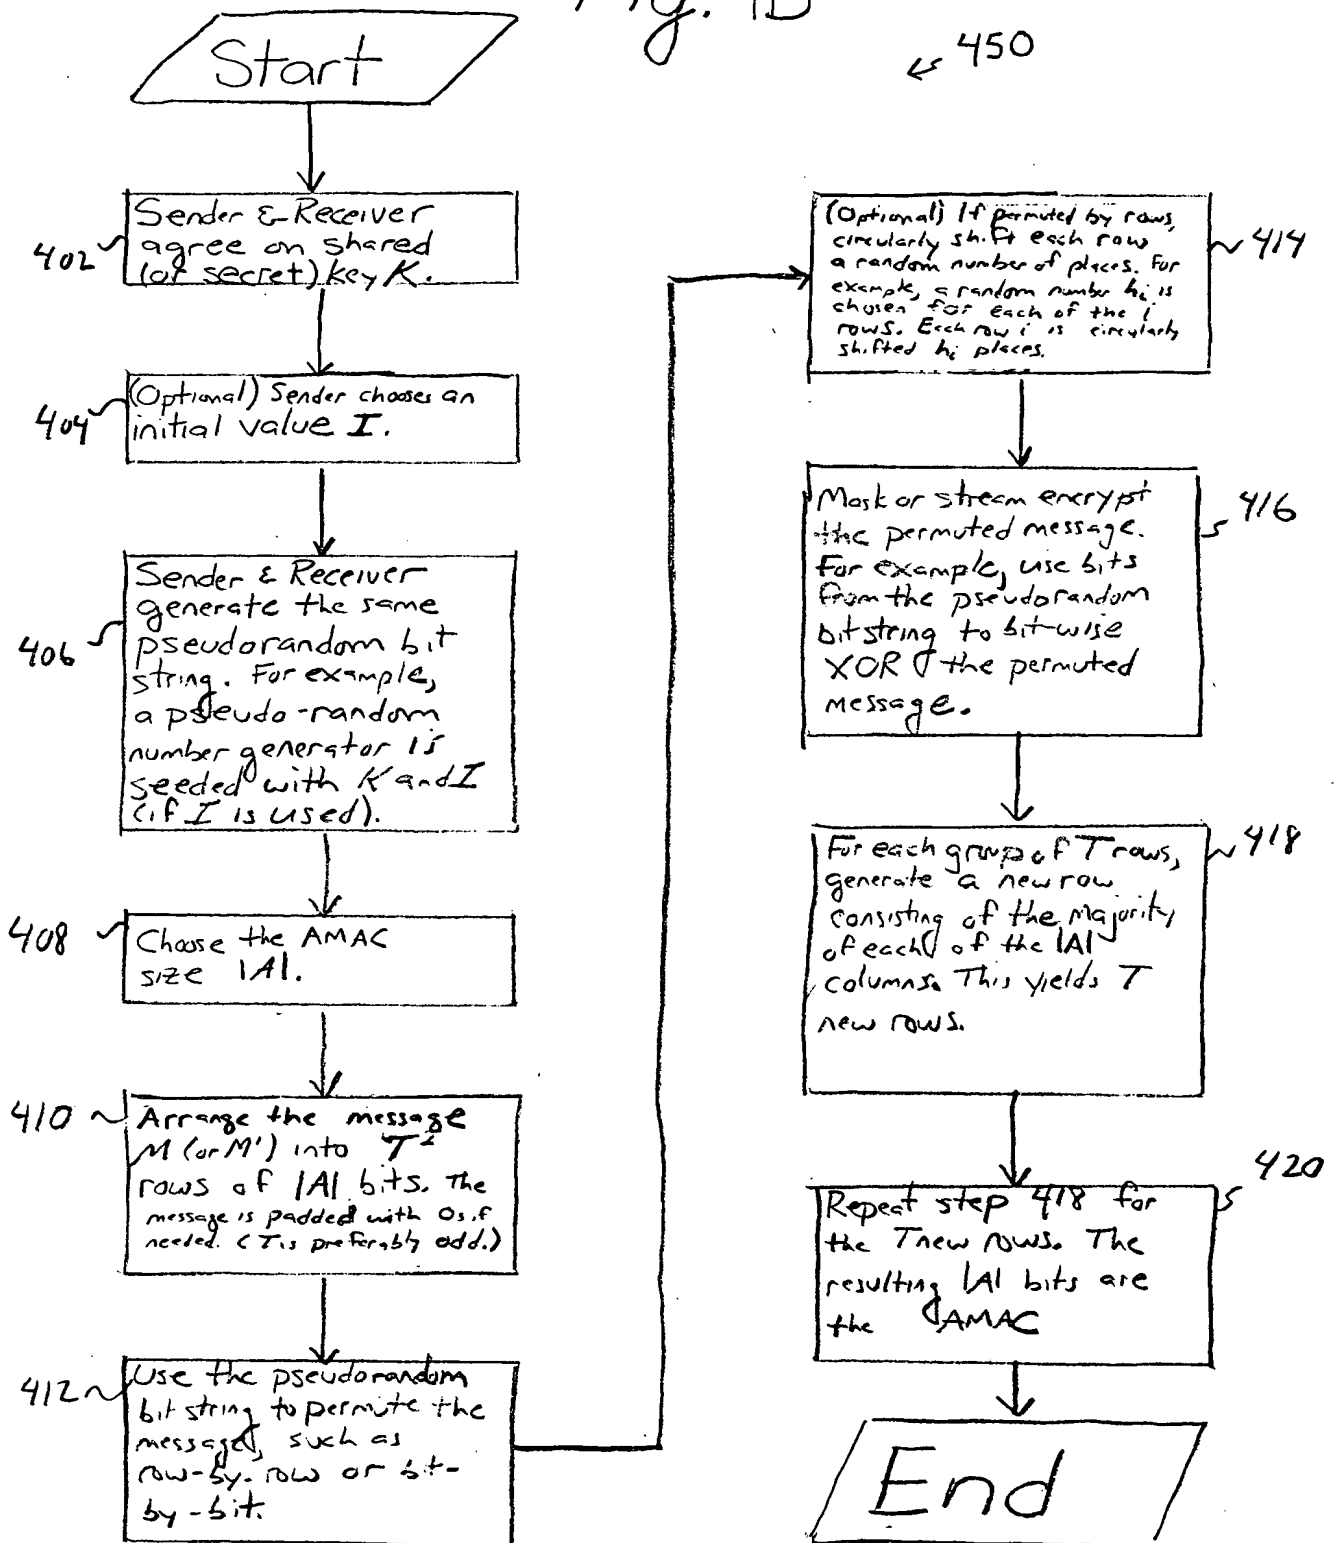 Fig. 4B
450
Start
402
Sender & Receiver
agree on shared
(or secret) key K.
404
(Optional) Sender chooses an
initial value I.
406
Sender & Receiver
generate the same
pseudorandom bit
string. For example,
a pseudo-random
number generator is
seeded with K and I
(if I is used).
408
Choose the AMAC
size |A|.
410
Arrange the message
M (or M') into T²
rows of |A| bits. The
message is padded with 0s if
needed. (T is preferably odd.)
412
Use the pseudorandom
bit string to permute the
message, such as
row-by-row or bit-
by-bit.
414
(Optional) If permuted by rows,
circularly shift each row
a random number of places. For
example, a random number hi is
chosen for each of the i
rows. Each row i is circularly
shifted hi places.
416
Mask or stream encrypt
the permuted message.
For example, use bits
from the pseudorandom
bit string to bit-wise
XOR the permuted
message.
418
For each group of T rows,
generate a new row
consisting of the majority
of each of the |A|
columns. This yields T
new rows.
420
Repeat step 418 for
the T new rows. The
resulting |A| bits are
the AMAC
End